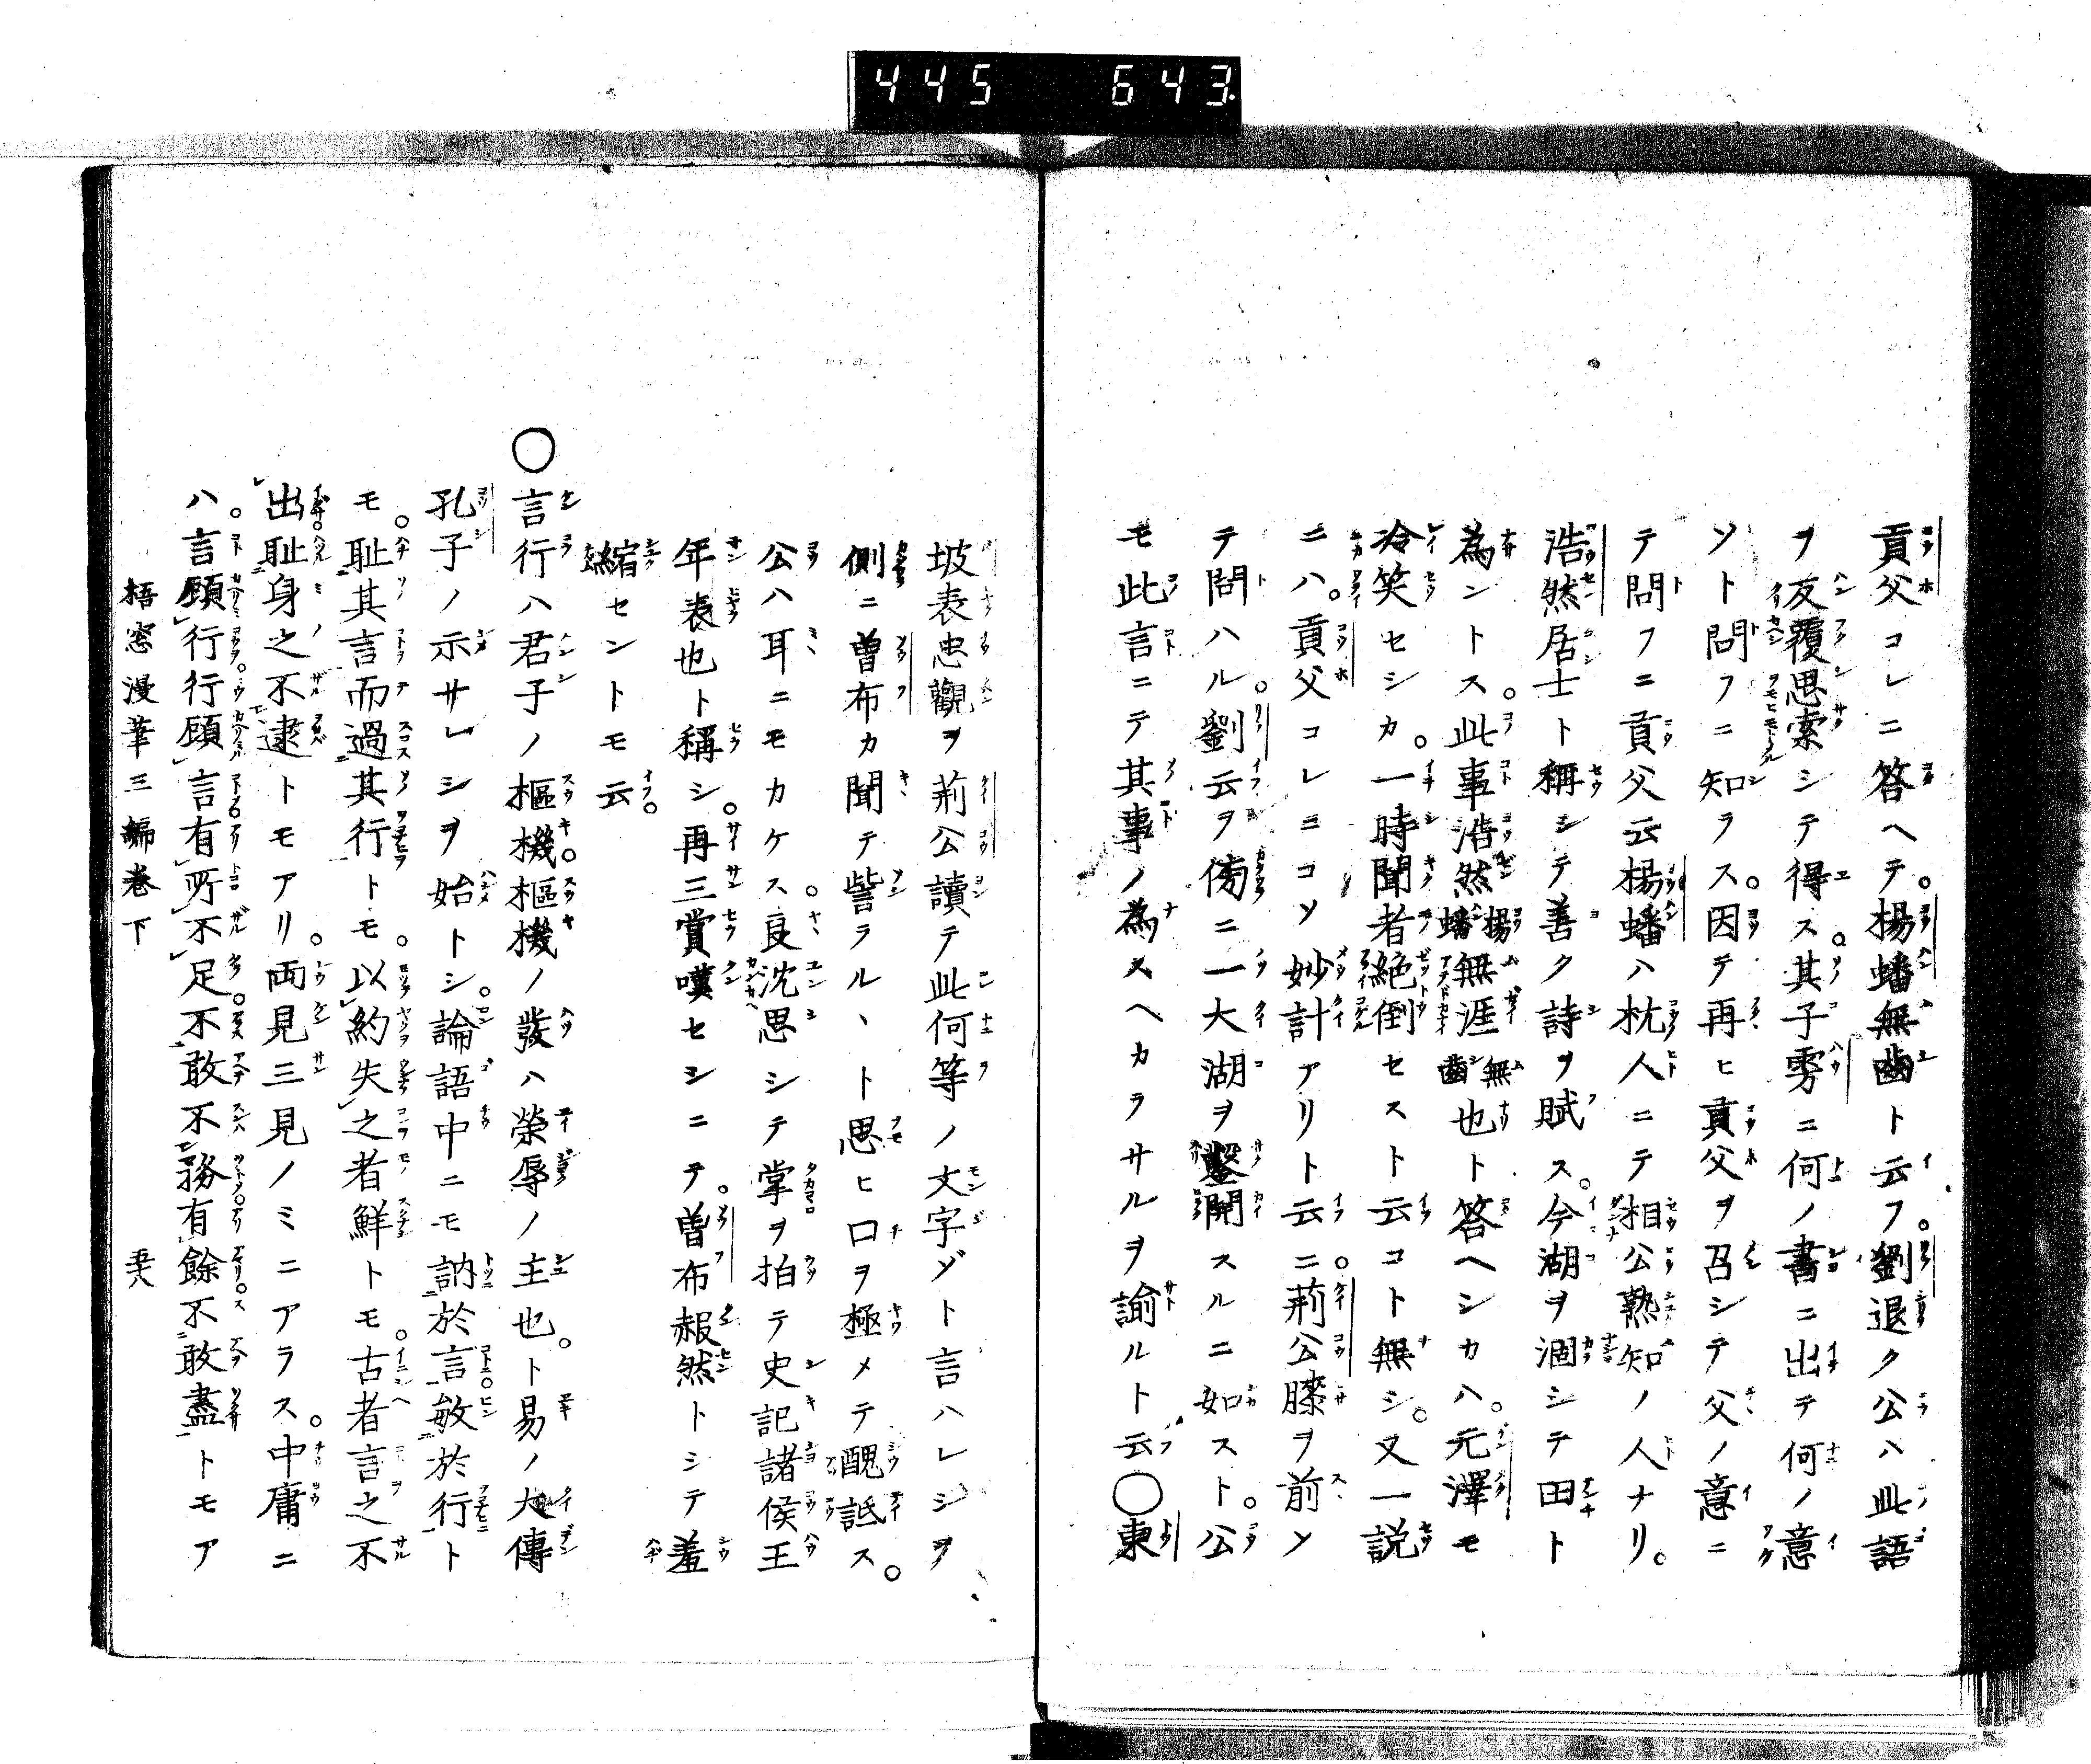 445 643
貢父コレニ答ヘテ。楊蟠無齒ト云フ。劉退ク公ハ此語
ヲ反覆思索シテ得ス。其子雱ニ何ノ書ニ出テ何ノ意
ソト問フニ知ラス。因テ再ヒ貢父ヲ召シテ父ノ意ニ
テ問フニ貢父云楊蟠ハ杭人ニテ相公熟知ノ人ナリ。
浩然居士ト稱シテ善ク詩ヲ賦ス。今湖ヲ涸シテ田ト
為ントス。此事浩然楊蟠無涯無齒也ト答ヘシカハ。元澤モ
冷笑セシカ。一時聞者絶倒セスト云コト無シ。又一説
ニハ。貢父コレニコソ妙計アリト云ニ。荊公膝ヲ前ン
テ問ハル。劉云ヲ傍ニ一大湖ヲ鑿開スルニ如スト。公
モ此言ニテ其事ノ為スヘカラサルヲ諭ルト云〇東
坡表忠觀ヲ荊公讀テ此何等ノ文字ゾト言ハレシヲ
側ニ曽布カ聞テ訾ラルヽト思ヒ口ヲ極メテ醜詆ス。
公ハ耳ニモカケス。良沈思シテ掌ヲ拍テ史記諸侯王
年表也ト稱シ。再三賞嘆セシニテ。曽布赧然トシテ羞
縮セントモ云。
〇言行ハ君子ノ樞機。樞機ノ發ハ榮辱ノ主也。ト易ノ大傳
孔子ノ示サレシヲ始トシ。論語中ニモ訥於言敏於行ト
モ。耻其言而過其行トモ。以約失之者鮮トモ。古者言之不
出耻身之不逮トモアリ。両見三見ノミニアラス。中庸ニ
ハ。言顧行行顧言有所不足不敢不務有餘不敢盡トモア
梧窓漫筆三編巻下